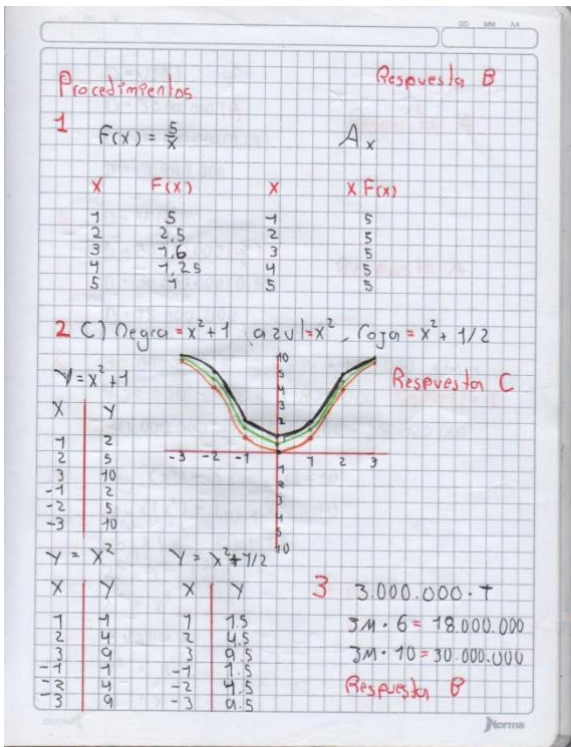 DD MM AA
Procedimientos
Respuesta B
1 F(x) = 5/x
Ax
X F(x) X X F(x)
1 5 1 5
2 2,5 2 5
3 1,6 3 5
4 1,25 4 5
5 1 5 5
2 C) Negra = x²+1 azul = x², roja = x² + 1/2
Y = x²+1
Respuesta C
X Y
1 2
2 5
3 10
-1 2
-2 5
-3 10
10
5
4
3
2
1
-3 -2 -1 1 2 3
1
2
3
4
5
10
Y = x²
X Y
1 1
2 4
3 9
-1 1
-2 4
-3 9
Y = x²+1/2
X Y
1 1.5
2 4.5
3 9.5
-1 1.5
-2 4.5
-3 9.5
3 3.000.000 · T
3M · 6 = 18.000.000
3M · 10 = 30.000.000
Respuesta B
Norma